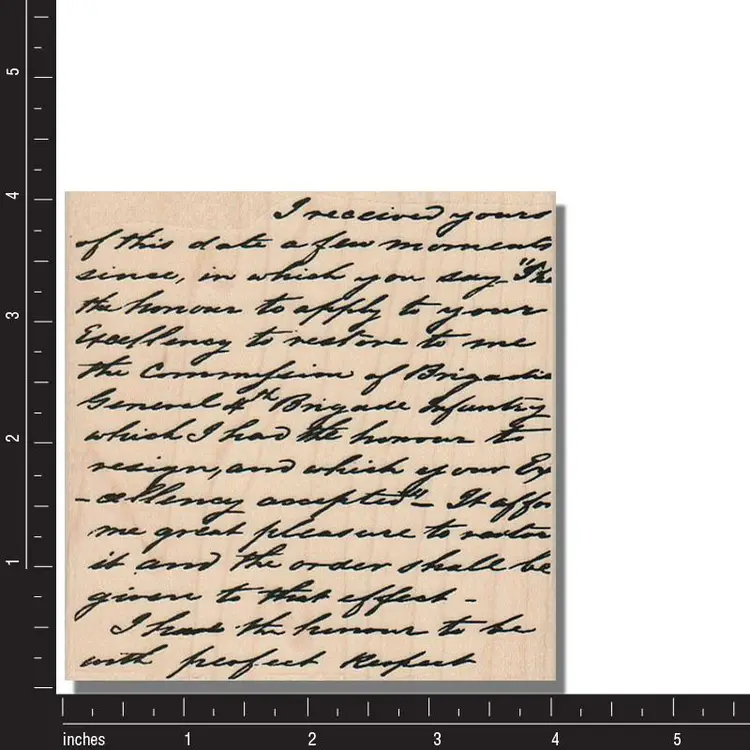 I received yours
of this date a few moments
since, in which you say "I ha
the honour to apply to your
Excellency to restore to me
the Commission of Brigadie
General 4th Brigade Infantry
which I had the honour to
resign, and which your Ex
-cellency accepted" - It affor
me great pleasure to restor
it and the order shall be
given to that effect -
I have the honour to be
with perfect Respect
5
4
3
2
1
inches 1 2 3 4 5